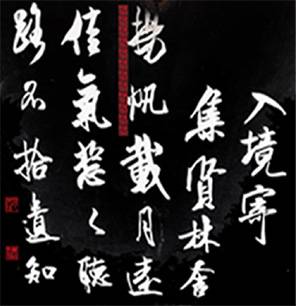 入境寄
集賢林舍
揚帆載月遠
佳氣葱々聽
路不拾遺知